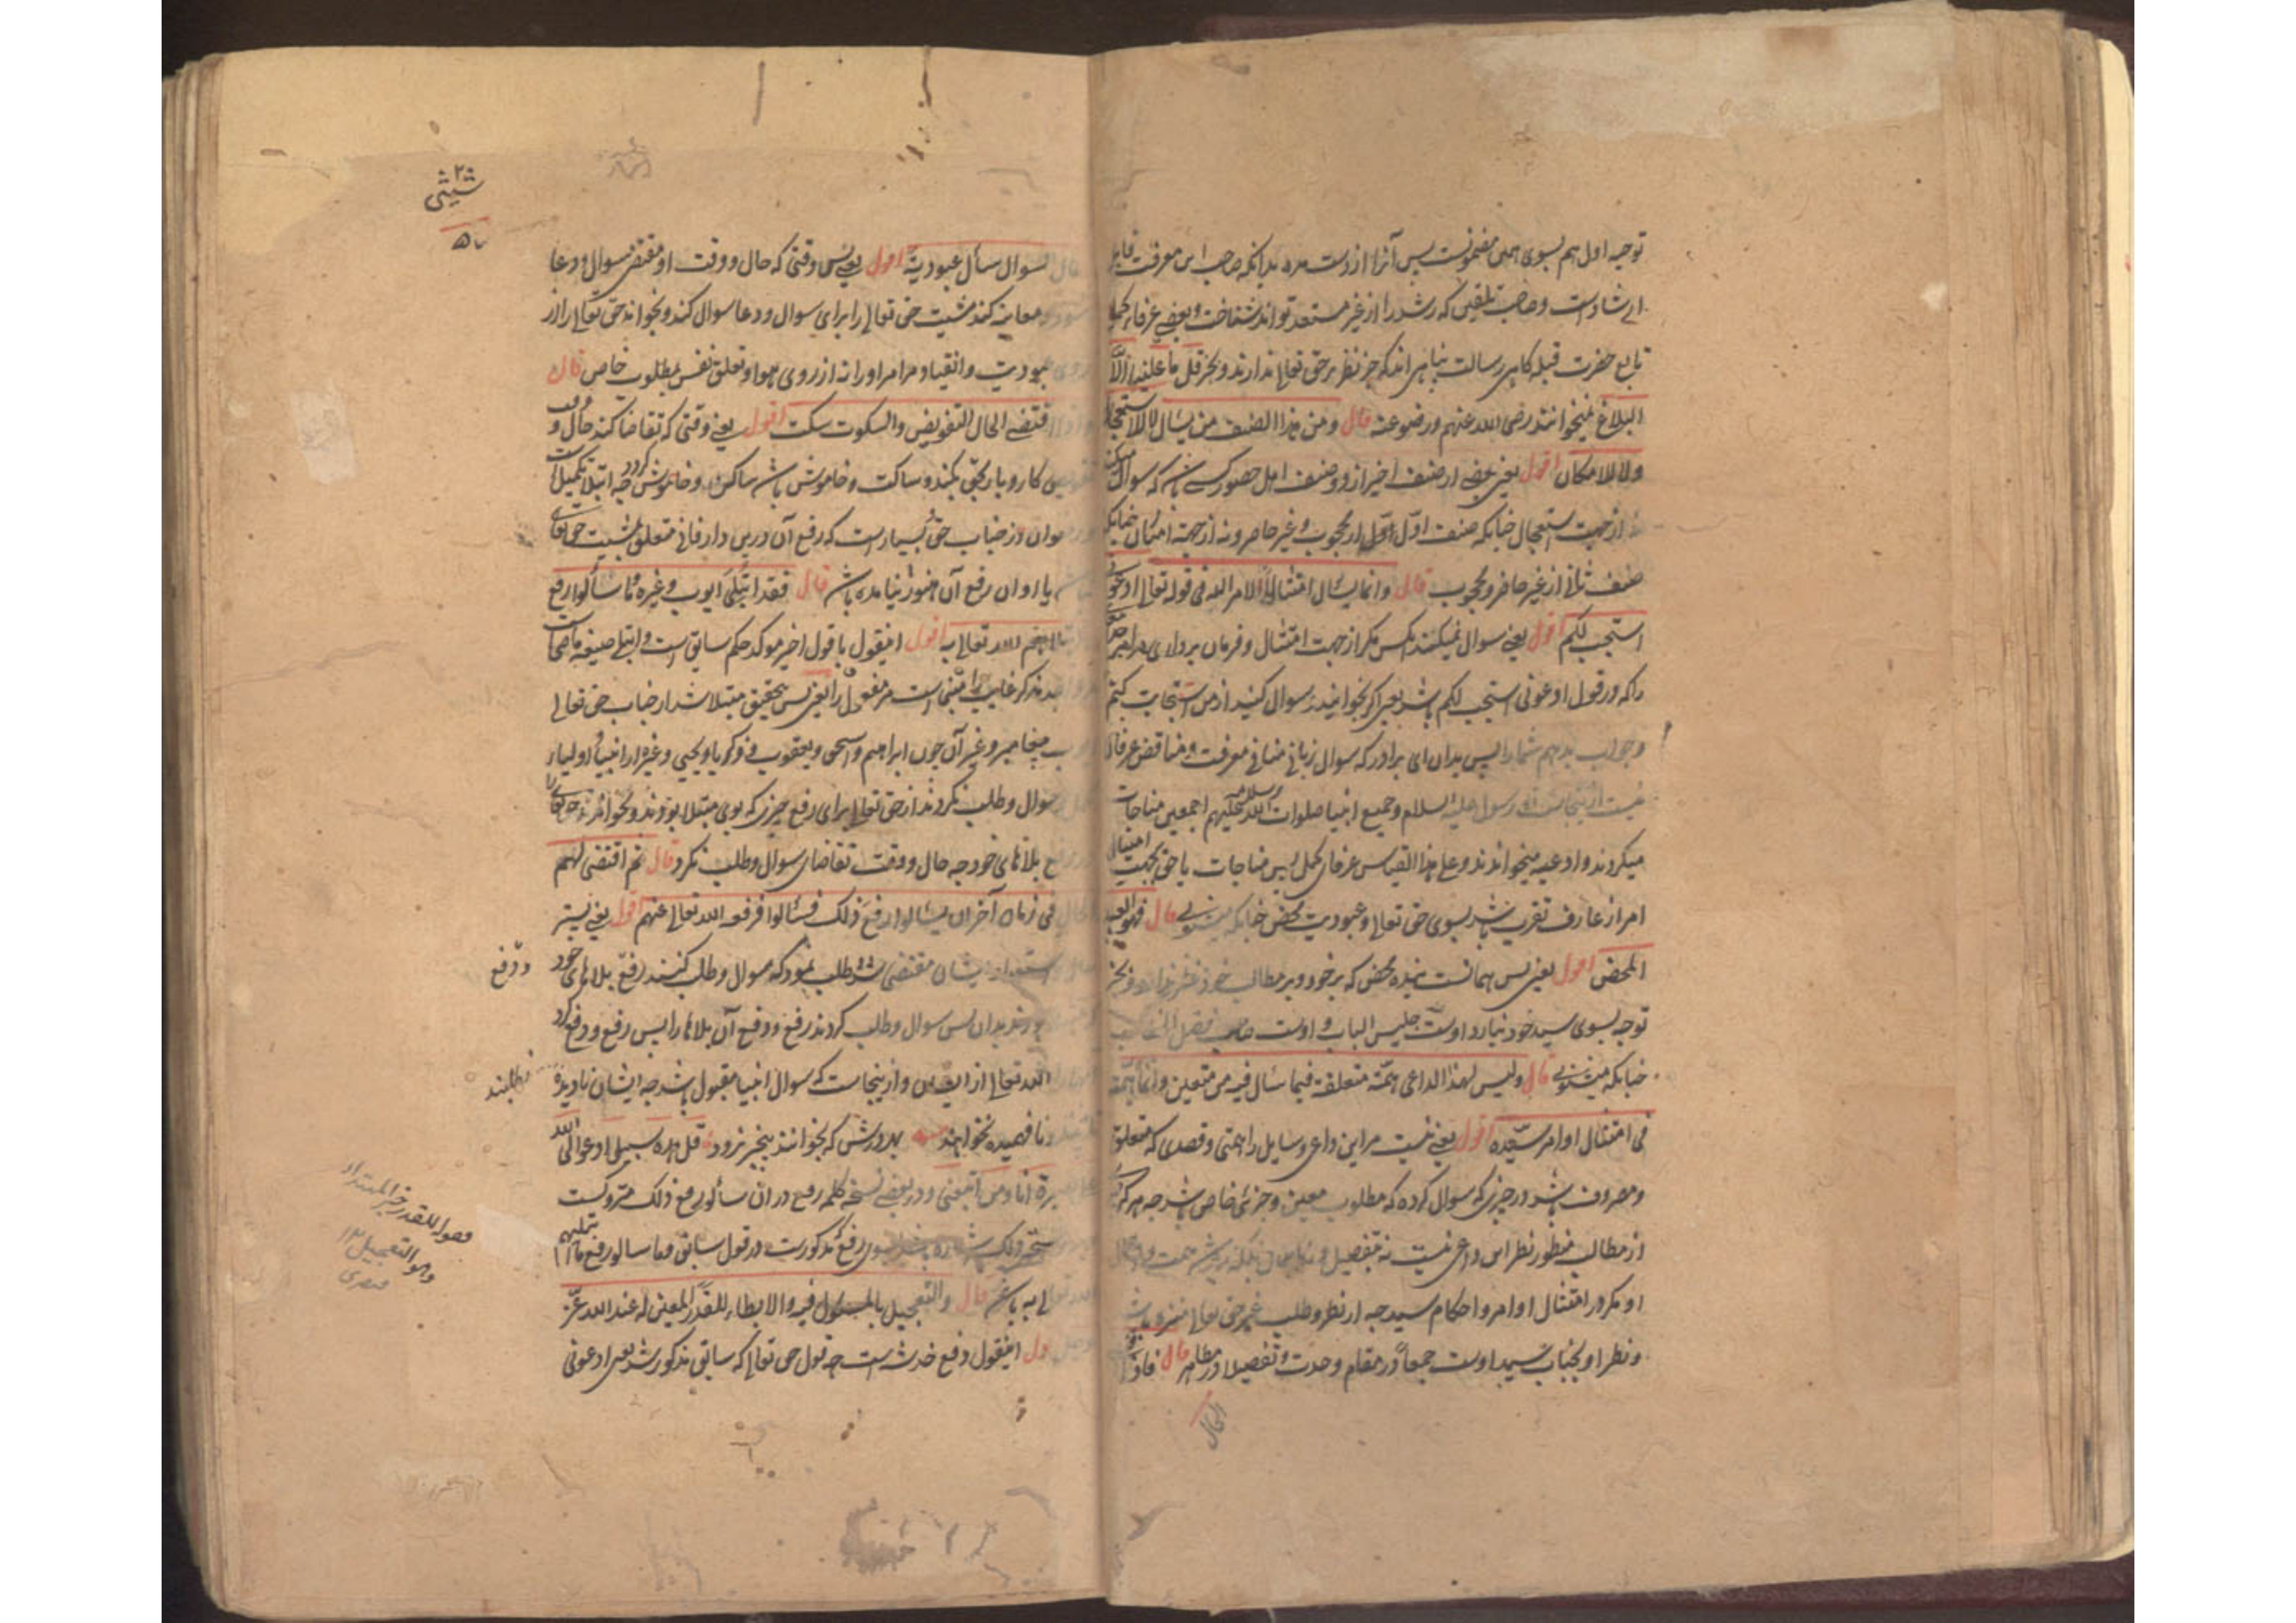 توجه اول هم بسوی همین مضمونست پس آنرا از دست مده بدانکه صاحب این معرفت قابل
ارشادست و صاحب تلقین که رشد را از غیر مستعد تواند شناخت و بعضی عرفاء کمل
تابع حضرت قبله کاهی رسالت پناهی اند که جز نظر بر حق تعالی ندارند و بجز قل ما علینا الا
البلاغ نمیخوانند رضی الله عنهم و رضوا عنه قال و من هذا الصنف من یسال لا للاستعجال
ولا للامکان اقول یعنی بعضی از صنف اخیر از دو صنف اهل حضور کسی باشد که سوال میکند
نه از جهت استعجال چنانکه صنف اول از محجوب و غیر حاضر و نه از جهة امکان چنانکه
صنف ثانی از غیر حاضر و محجوب قال و انما یسال امتثالا لامر الله فی قوله تعالی ادعونی
استجب لکم اقول یعنی سوال نمیکند مکر از جهت امتثال و فرمان برداری مر امر حق
را که در قول ادعونی استجب لکم باشد یعنی اکر بخوانید و سوال کنید از من استجابت کنم
و جواب بدهم شما را پس بدان ای برادر که سوال زبانی منافی معرفت و مناقض عرفان
نیست ازینجاست که رسول علیه السلام و جمیع انبیا صلوات الله و سلامه علیهم اجمعین مناجات
میکردند و ادعیه میخواندند و علی هذا القیاس عرفای کمل پس مناجات با حق بجهت امتثال
امر از عارف تقرب باشد بسوی حق تعالی و عبودیت محض چنانکه میشنوی قال فهو العبد
المحض اقول یعنی پس همانست بنده محض که بر خود و بر مطالب خود نظر ندارد و بجز
توجه بسوی سید خود نیارد اوست جلیس الباب و اوست صاحب فصل الخطاب
چنانکه میشنوی قال و لیس لهذا الداعی همة متعلقة فیما سال فیه من متعین و انما همته
فی امتثال اوامر سیده اقول یعنی نیست مر این داعی و سایل را همتی و قصدی که متعلق
و مصروف باشد در چیزی که سوال کرده که مطلوب معین و جزئی خاص باشد چه هر کز
از مطالب منظور نظر این داعی نیست نه بتفصیل و نه باجمال بلکه نیست همت و اجمال
او مکر در امتثال اوامر و احکام سید چه از نظر و طلب غیر حق تعالی منزه باشد
و نظر او بجناب سید اوست جمعا در مقام وحدت و تفصیلا در مظاهر قال فاذا
الحال
شیثی
السوال سأل عبودیة اقول یعنی پس وقتی که حال و وقت او مقتضی سوال و دعا
معاینه کند مشیت حق تعالی را برای سوال و دعا سوال کند و بخواند حق تعالی را از
عبودیت و انقیاد مر امر او را نه از روی هوا و تعلق نفس بمطلوب خاص قال
اقتضی الحال التفویض و السکوت سکت اقول یعنی وقتی که تقاضا کند حال و وقت
تفویض کار و بار بحق بکند و ساکت و خاموش باشد ساکت و خاموش کردد چه ابتلا تکمیل است
از جناب حق بسیارست که رفع آن درین دار فانی متعلق بمشیت حق تعالی
یا اوان رفع آن هنوز نیامده باشد قال فقد ابتلی ایوب و غیره و ما سألوا رفع
ما ابتلاهم الله تعالی به اقول اینقول با قول اخیر موکد حکم سابق است و ابتلی صیغه ماضیست
مذکر غایب را مبنی است مر مفعول را یعنی پس بتحقیق مبتلا شد از جناب حق تعالی
ایوب پیغامبر و غیر آن چون ابراهیم و اسحق و یعقوب و ذکریا و یحیی و غیره از انبیا و اولیاء
سوال و طلب نکردند از حق تعالی برای رفع چیزی که بوی مبتلا بودند و نخواندند حق تعالی را
رفع بلاهای خود چه حال و وقت تقاضای سوال و طلب نکرد قال ثم اقتضی لهم
الحال فی زمان آخر ان یسألوا رفع ذلک فسألوا فرفعه الله تعالی عنهم اقول یعنی پستر
استعداد ایشان مقتضی شد و طلب نمود که سوال و طلب کنند رفع بلاهای خود
و دفع
بودند بدان پس سوال و طلب کردند رفع و دفع آن بلاها را پس رفع و دفع کرد
الله تعالی از ایشان و ازینجاست که سوال انبیا مقبول باشد چه ایشان نادیده
و نافهمیده نخوانند بهر روش که بخوانند بیخبر نرود قل هذه سبیلی ادعوا الی الله
علی بصیرة انا و من اتبعنی و در بعضی نسخه کلمه رفع در ان سألوا رفع ذلک متروکست
رفع مذکورست در قول سابق و ما سالوا رفع ما ابتلیهم
الله تعالی به باشد قال و التعجیل بالمسئول فیه و الابطاء للقدر المعین له عند الله عز
اقول اینقول دفع خدشه است چه قول حق تعالی که سابق مذکور شد یعنی ادعونی